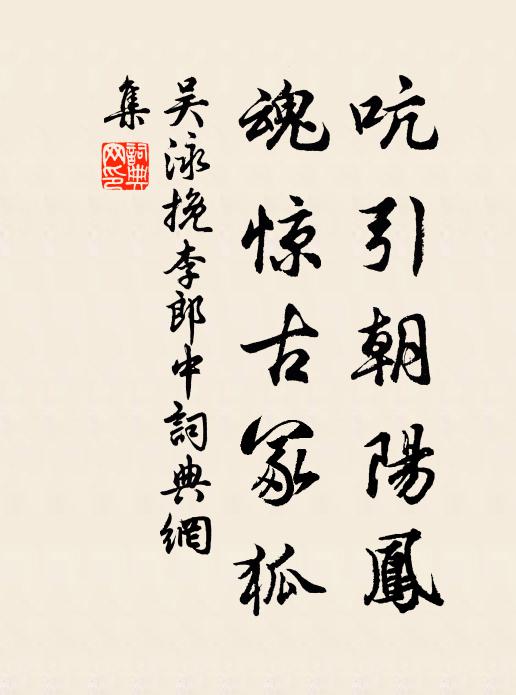 吭引朝陽鳳
魂惊古冢狐
吴泳挽李郎中詞典網
集
詞典网印